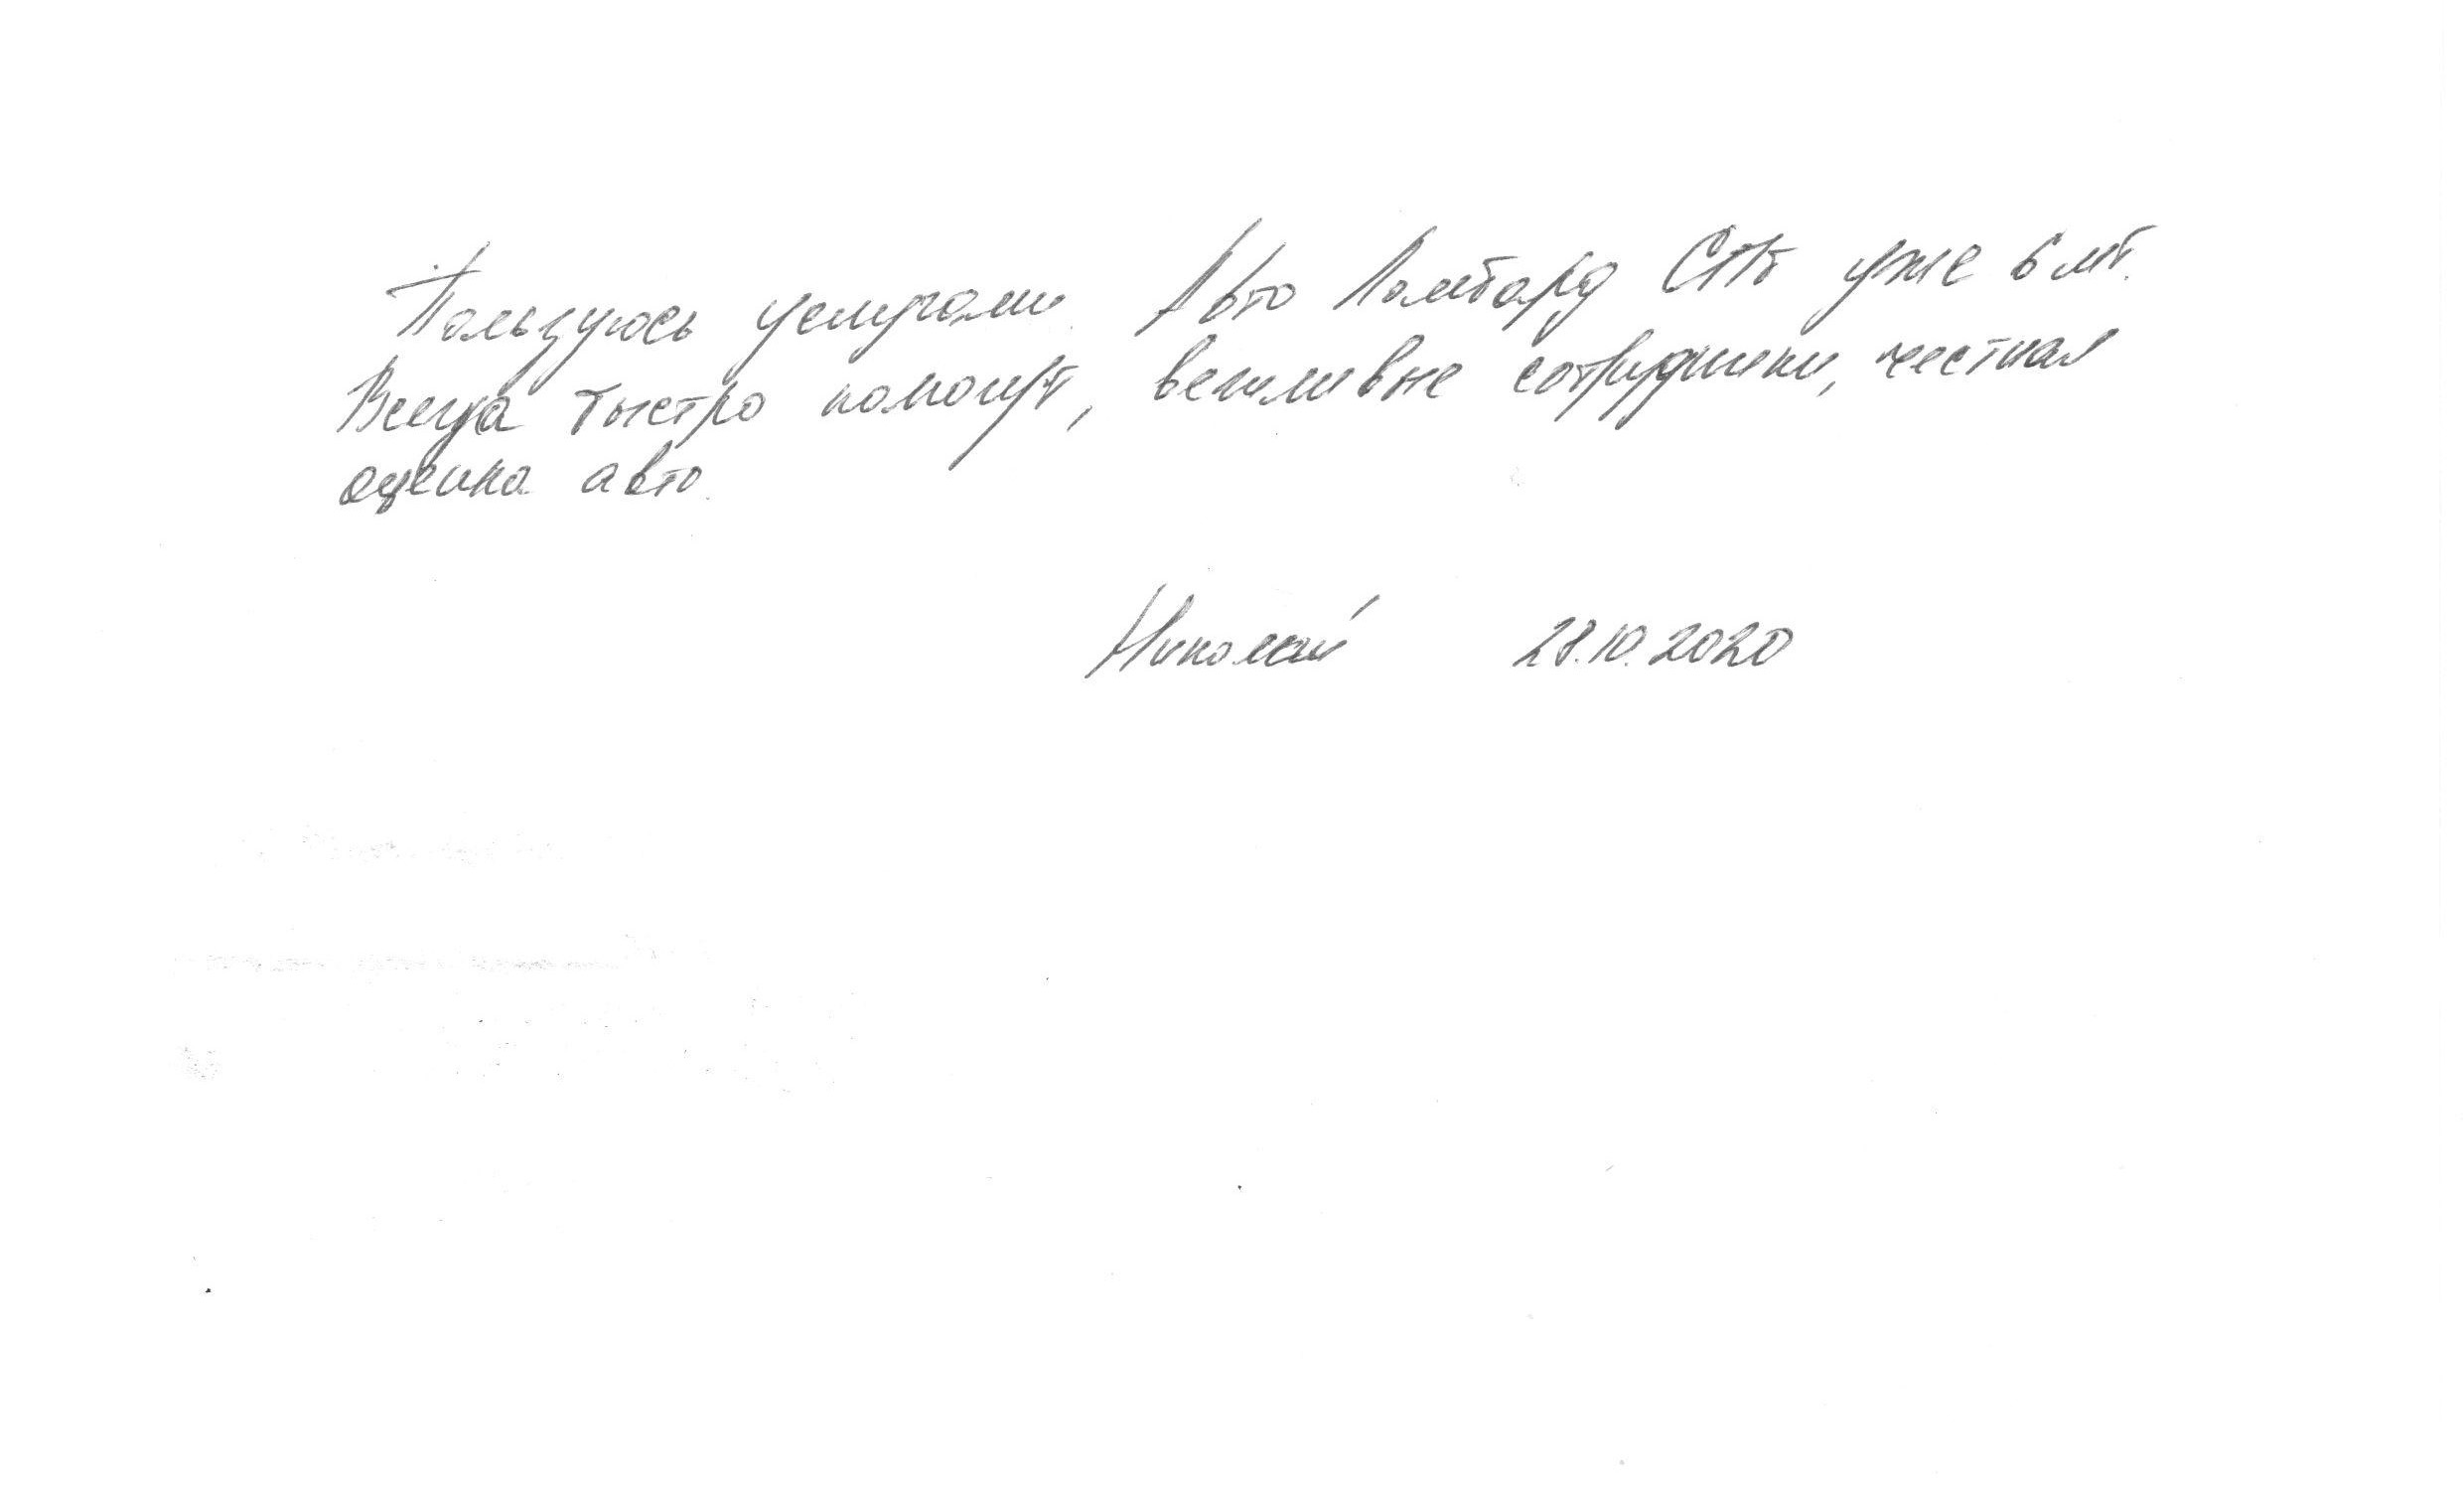 Пользуюсь услугами Авто Ломбард СПб уже 6 лет.
Всегда быстро помогут, вежливые сотрудники, честная
оценка авто.
Николай 28.10.2020